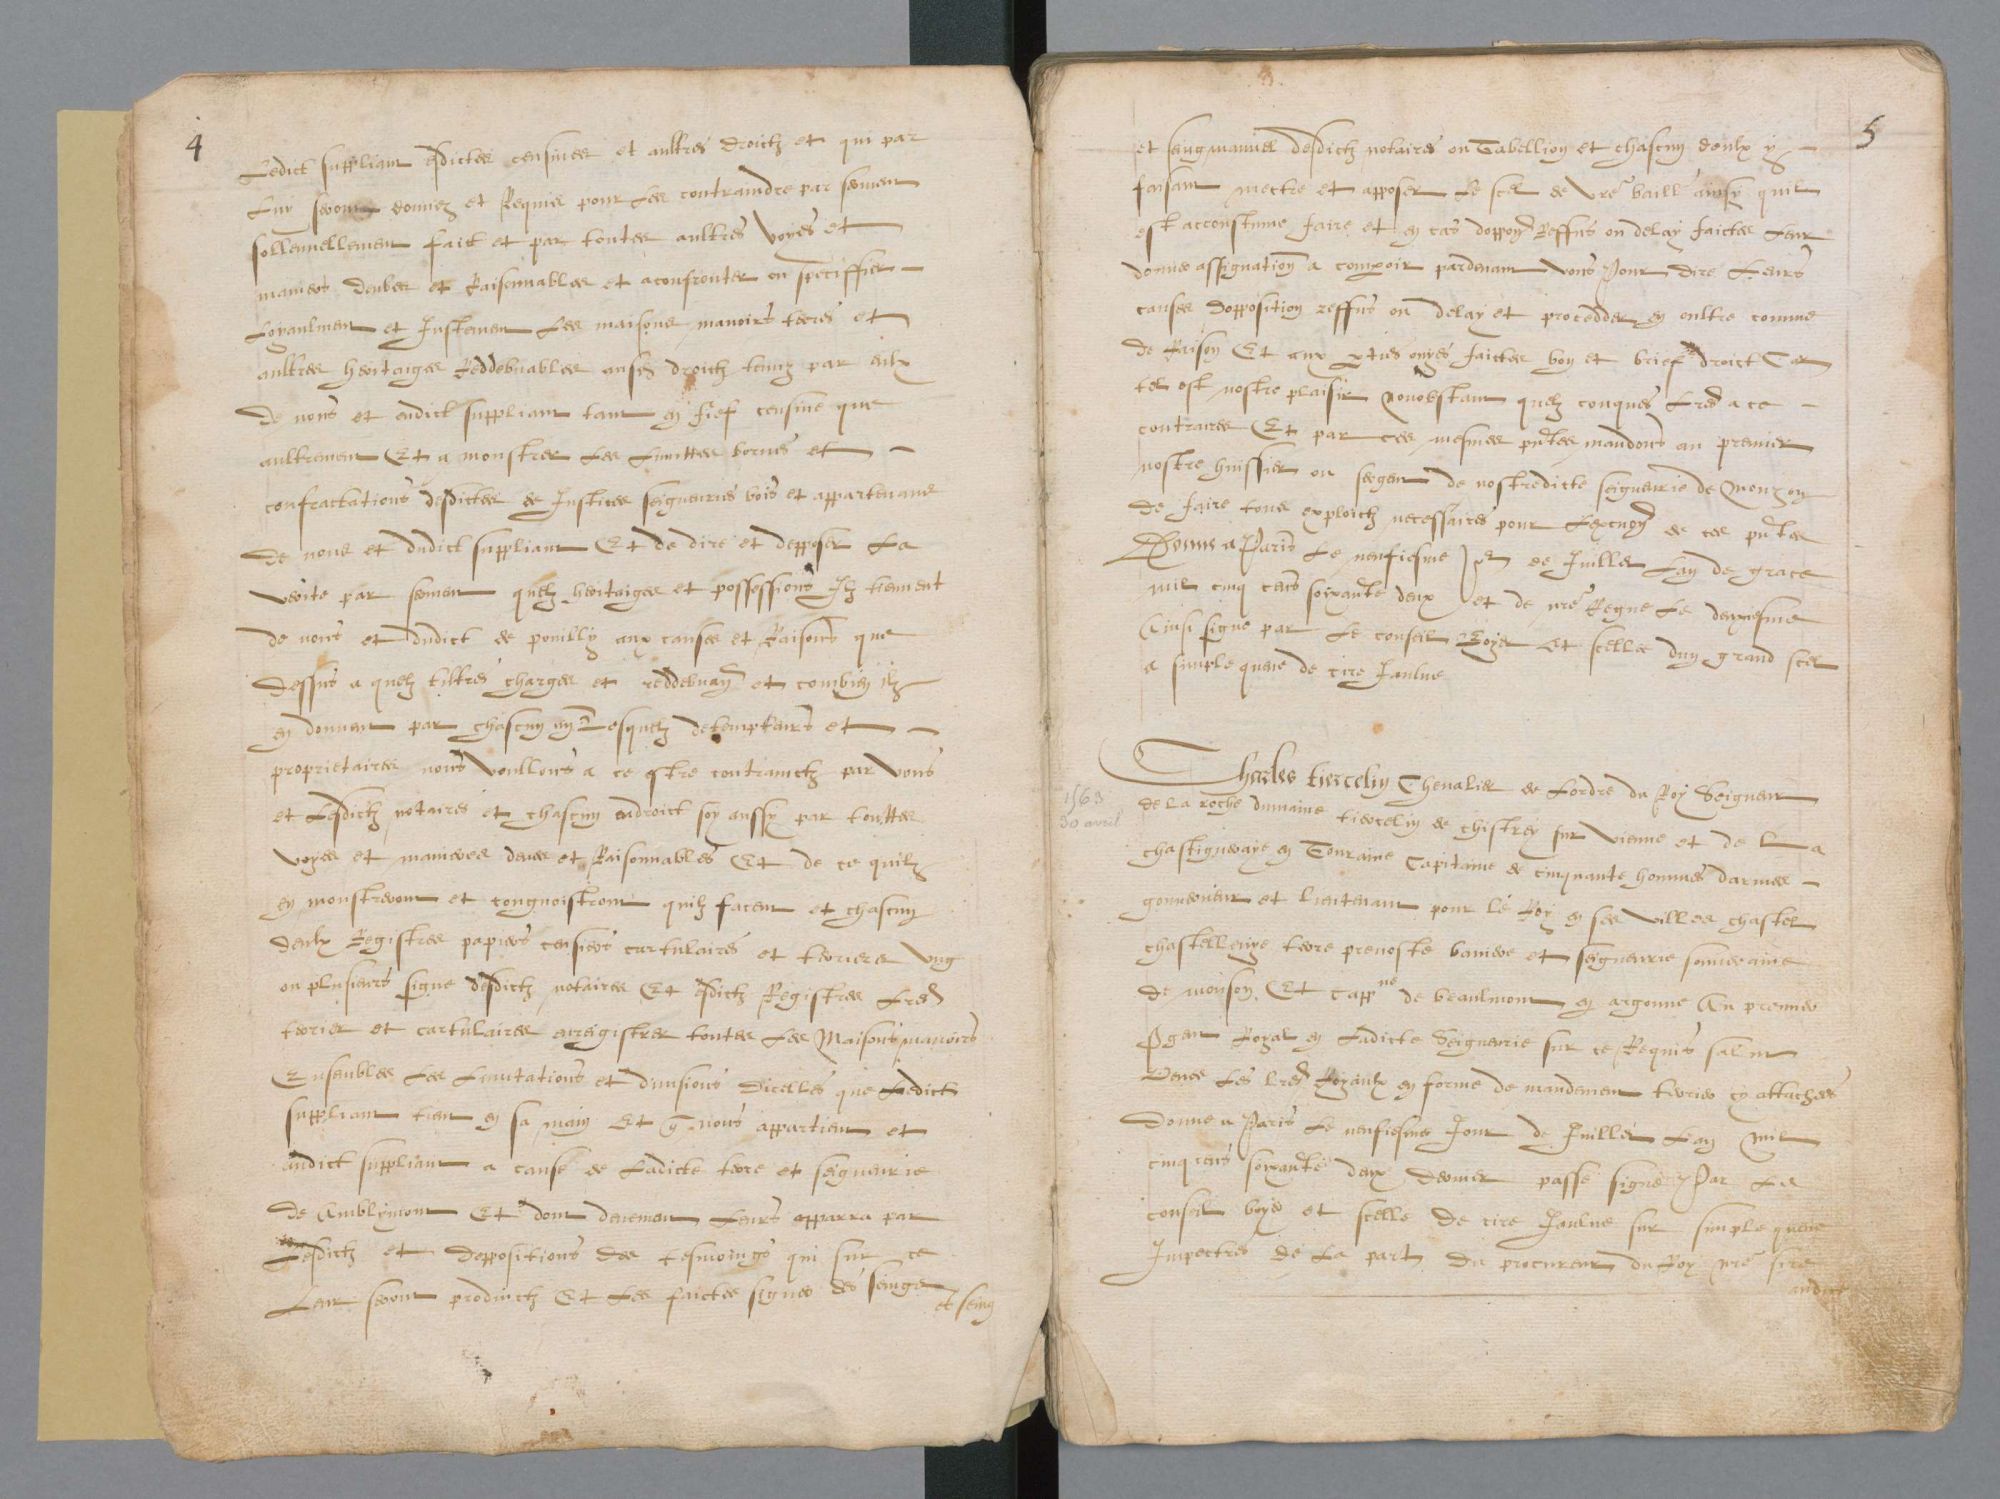 4
Ledict suppliant esdictes censives et aultres droictz et qui par
luy seront donnez et Requis pour les contraindre par serment
sollennellement faict et par toutes aultres voyes et
manieres deubes et Raisonnables et a confronter ou speciffier
Loyaulment et Justement les maisons manoirs terres et
aultres heritaiges Reddebvables ausdictz droictz tenuz par eulx
de nous et audict suppliant tant en fief censive que
aultrement Et a monstrer les limittes bornes et
confractations desdictes de Justices seigneuries bois et appartenans
de nous et dudict suppliant Et de dire et depposer la
verite par serment quelz heritaiges et possessions Ilz tiennent
de nous et dudict de pouilly aux causes et Raisons que
dessus a quelz tiltres charges et reddebvan et combien ilz
en donnent par chascun an Lesquelz detempteurs et
proprietaires nous voullons a ce estre contrainctz par vous
et lesdictz notaires et chascun endroict soy aussy par touttes
voyes et manieres deues et Raisonnables Et de ce quilz
en monstreront et congnoistront quilz facent et chascun
deulx Registres papiers censiers cartulaires et terriers ung
ou plusieurs signe desdictz notaires Et esdictz Registres Lres
terrier et cartulaires enregistrer toutes les Maisons manoirs
Ensembles les limitations et divisions dicelles que ledict
suppliant tient en sa main Et q nous appartient et
audict suppliant a cause de ladicte terre et seigneurie
de Amblymont Et dont deuement leurs apparra par
lesdictz et deppositions des tesmoings qui sur ce
leur seront produictz Et les faictes signer des seings
et seing
5
et seing manuel desdictz notaires ou Tabellion et chascun deulx y
faisant mectre et apposer le scel de vre baill ainsy quil
est accoustume faire et en cas doppon Reffus ou delay faictes leur
donner assignation a comparoir pardevant vous Pour dire leurs
causes dopposition reffus ou delay et procedder en oultre comme
de Raison Et aux parties ouyes faictes bon et brief droict Car
tel est nostre plaisir Nonobstant quelz conques lres a ce
contraires Et par ces mesmes pntes mandons au premier
nostre huissier ou sergent de nostredicte seigneurie de Mouzon
de faire tous exploictz necessaires pour lexcuon de ces pntes
Donne a Paris le neufiesme Jour de Juillet lan de grace
mil cinq cens soixante deux et de nre Regne le deuxiesme
Ainsi signe par le conseil Boyer Et scelle dun grand scel
a simple queue de cire Jaulne
1563
30 avril
Charles tiercelin Chevalier de lordre du Roy Seigneur
de la roche dumaine tiercelin de chistrey sur vienne et de la
chastigneraye en Touraine Capitaine de cinquante hommes darmes
gouverneur et lieutenant pour le Roy en ses villes chastel
chastellenye terre prevoste baniere et seigneurie souveraine
de mouson Et capp ne de beaulmont en argonne Au premier
sgent Royal en ladicte Seigneurie sur ce Requis salut
Veues les lres Royaulx en forme de mandement terrier cy attachees
Donne a Paris le neufiesme Jour de Juillet lan mil
cinq cens soixante deux dernier passe signe Par le
conseil boyer et scelle de cire Jaulne sur simple queue
Impectres de la part du procureur du Roy nre sire
audict